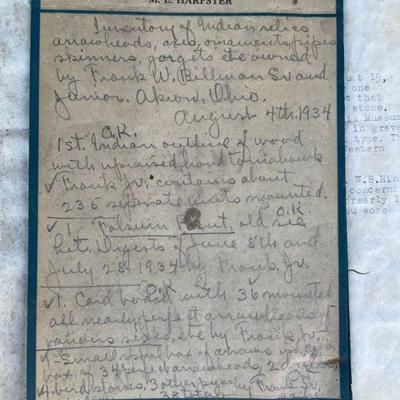 M. L. HARPSTER
Inventory of Indian relics
arrowheads, axes, ornaments, pipes
spinners, gorgets etc owned
by Frank W. Billman Sr and
Junior. Akron, Ohio.
August 4th. 1934
O.K.
1st. Indian outline of wood
with upraised hand tomahawk
✓ Frank Jr. contains about
235 separate units mounted.
O.K.
✓ 1. Folsum old see
Lit. Digests of June 8th and
July 28 1934 by Frank Jr.
O.K.
✓ 1. Card board with 36 mounted
all nearly perfect arrowheads of
various sizes, etc by Frank Jr.
✓ Small box of
box of 34 perfect arrowheads, 2
4 bird stones, 3 other by Frank Sr,
38 total
ust 15,
one
t that
stone.
is Museum
in grave
type. T
estern
W.B.Hin
concerni
ormerly l
you some